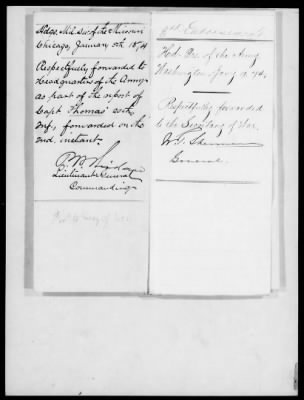 Hdqs. Mil. Div. of the Missouri
Chicago, January 5th 1874
Respectfully forwarded to
Headquarters of the Army
as part of the report of
Capt Thomas' 20th
Inf, forwarded on the
2nd, instant.
P. H. Sheridan
Lieutenant General
Commanding
Hed. Qrs. of the Army
Washington Jany 1874,
Respectfully forwarded
to the Secretary of War.
W. T. Sherman
General